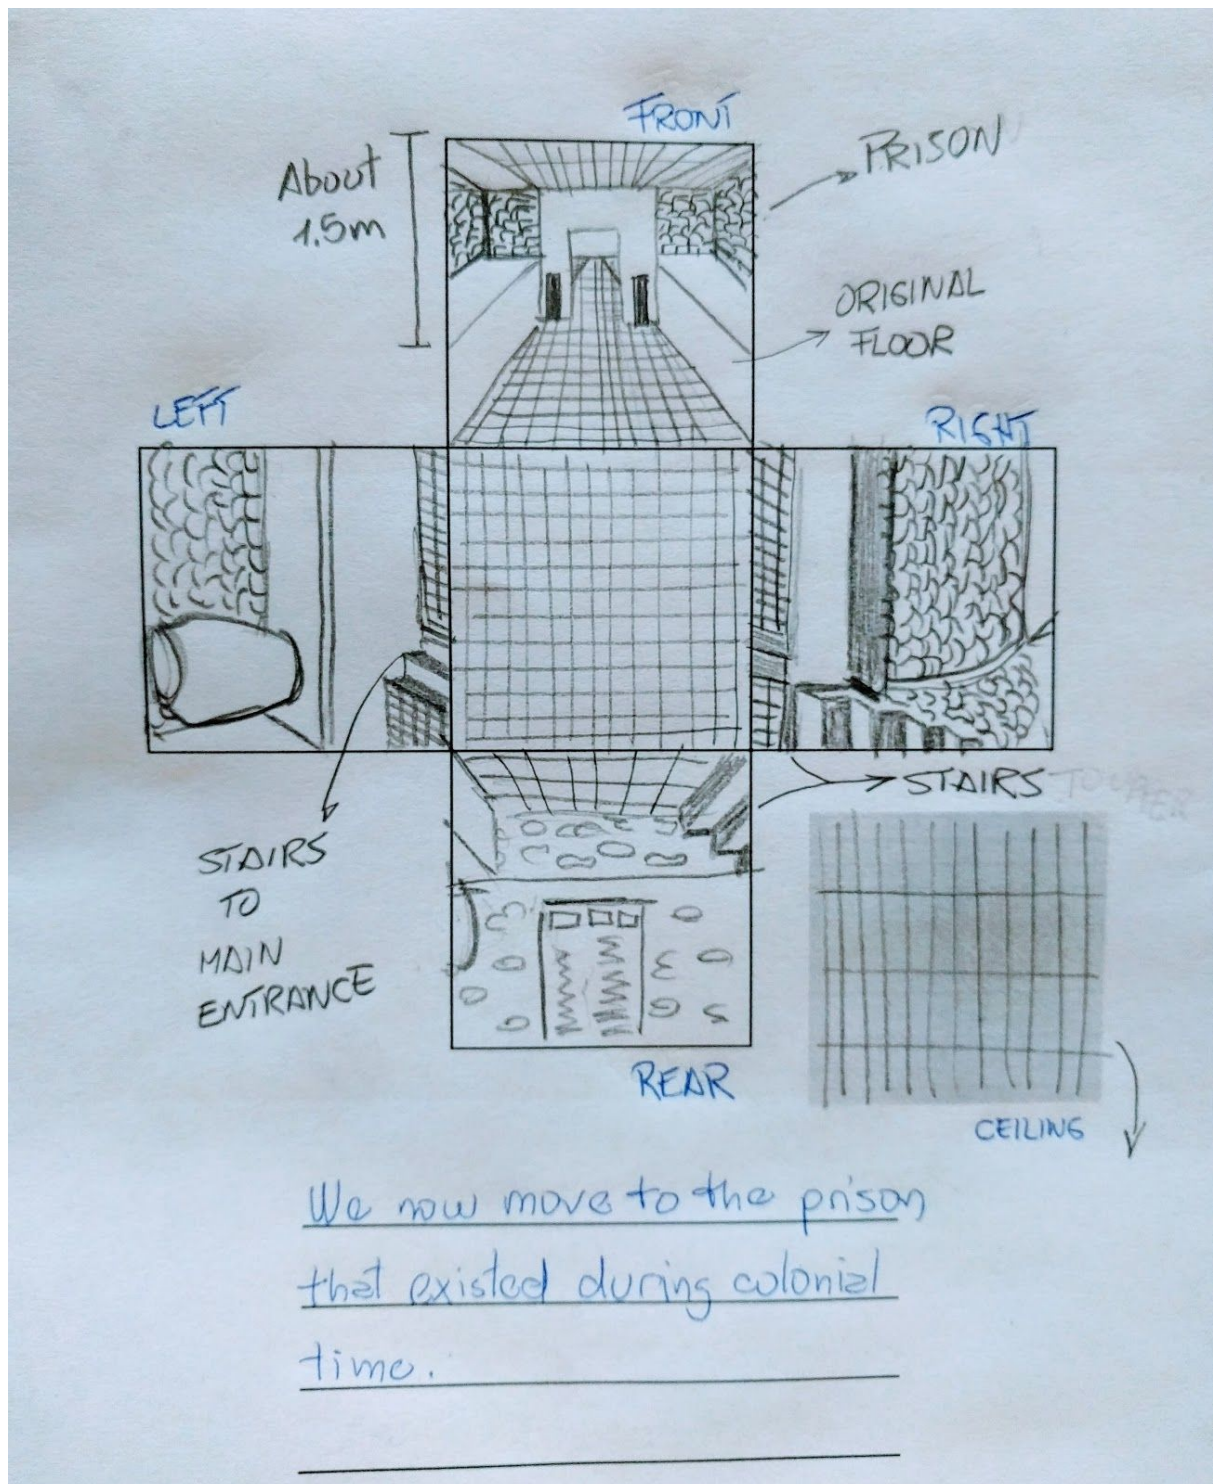 FRONT
PRISON
About
1.5m
ORIGINAL
FLOOR
LEFT
RIGHT
STAIRS
STAIRS
TO
MAIN
ENTRANCE
REAR
CEILING
We now move to the prison
that existed during colonial
time.